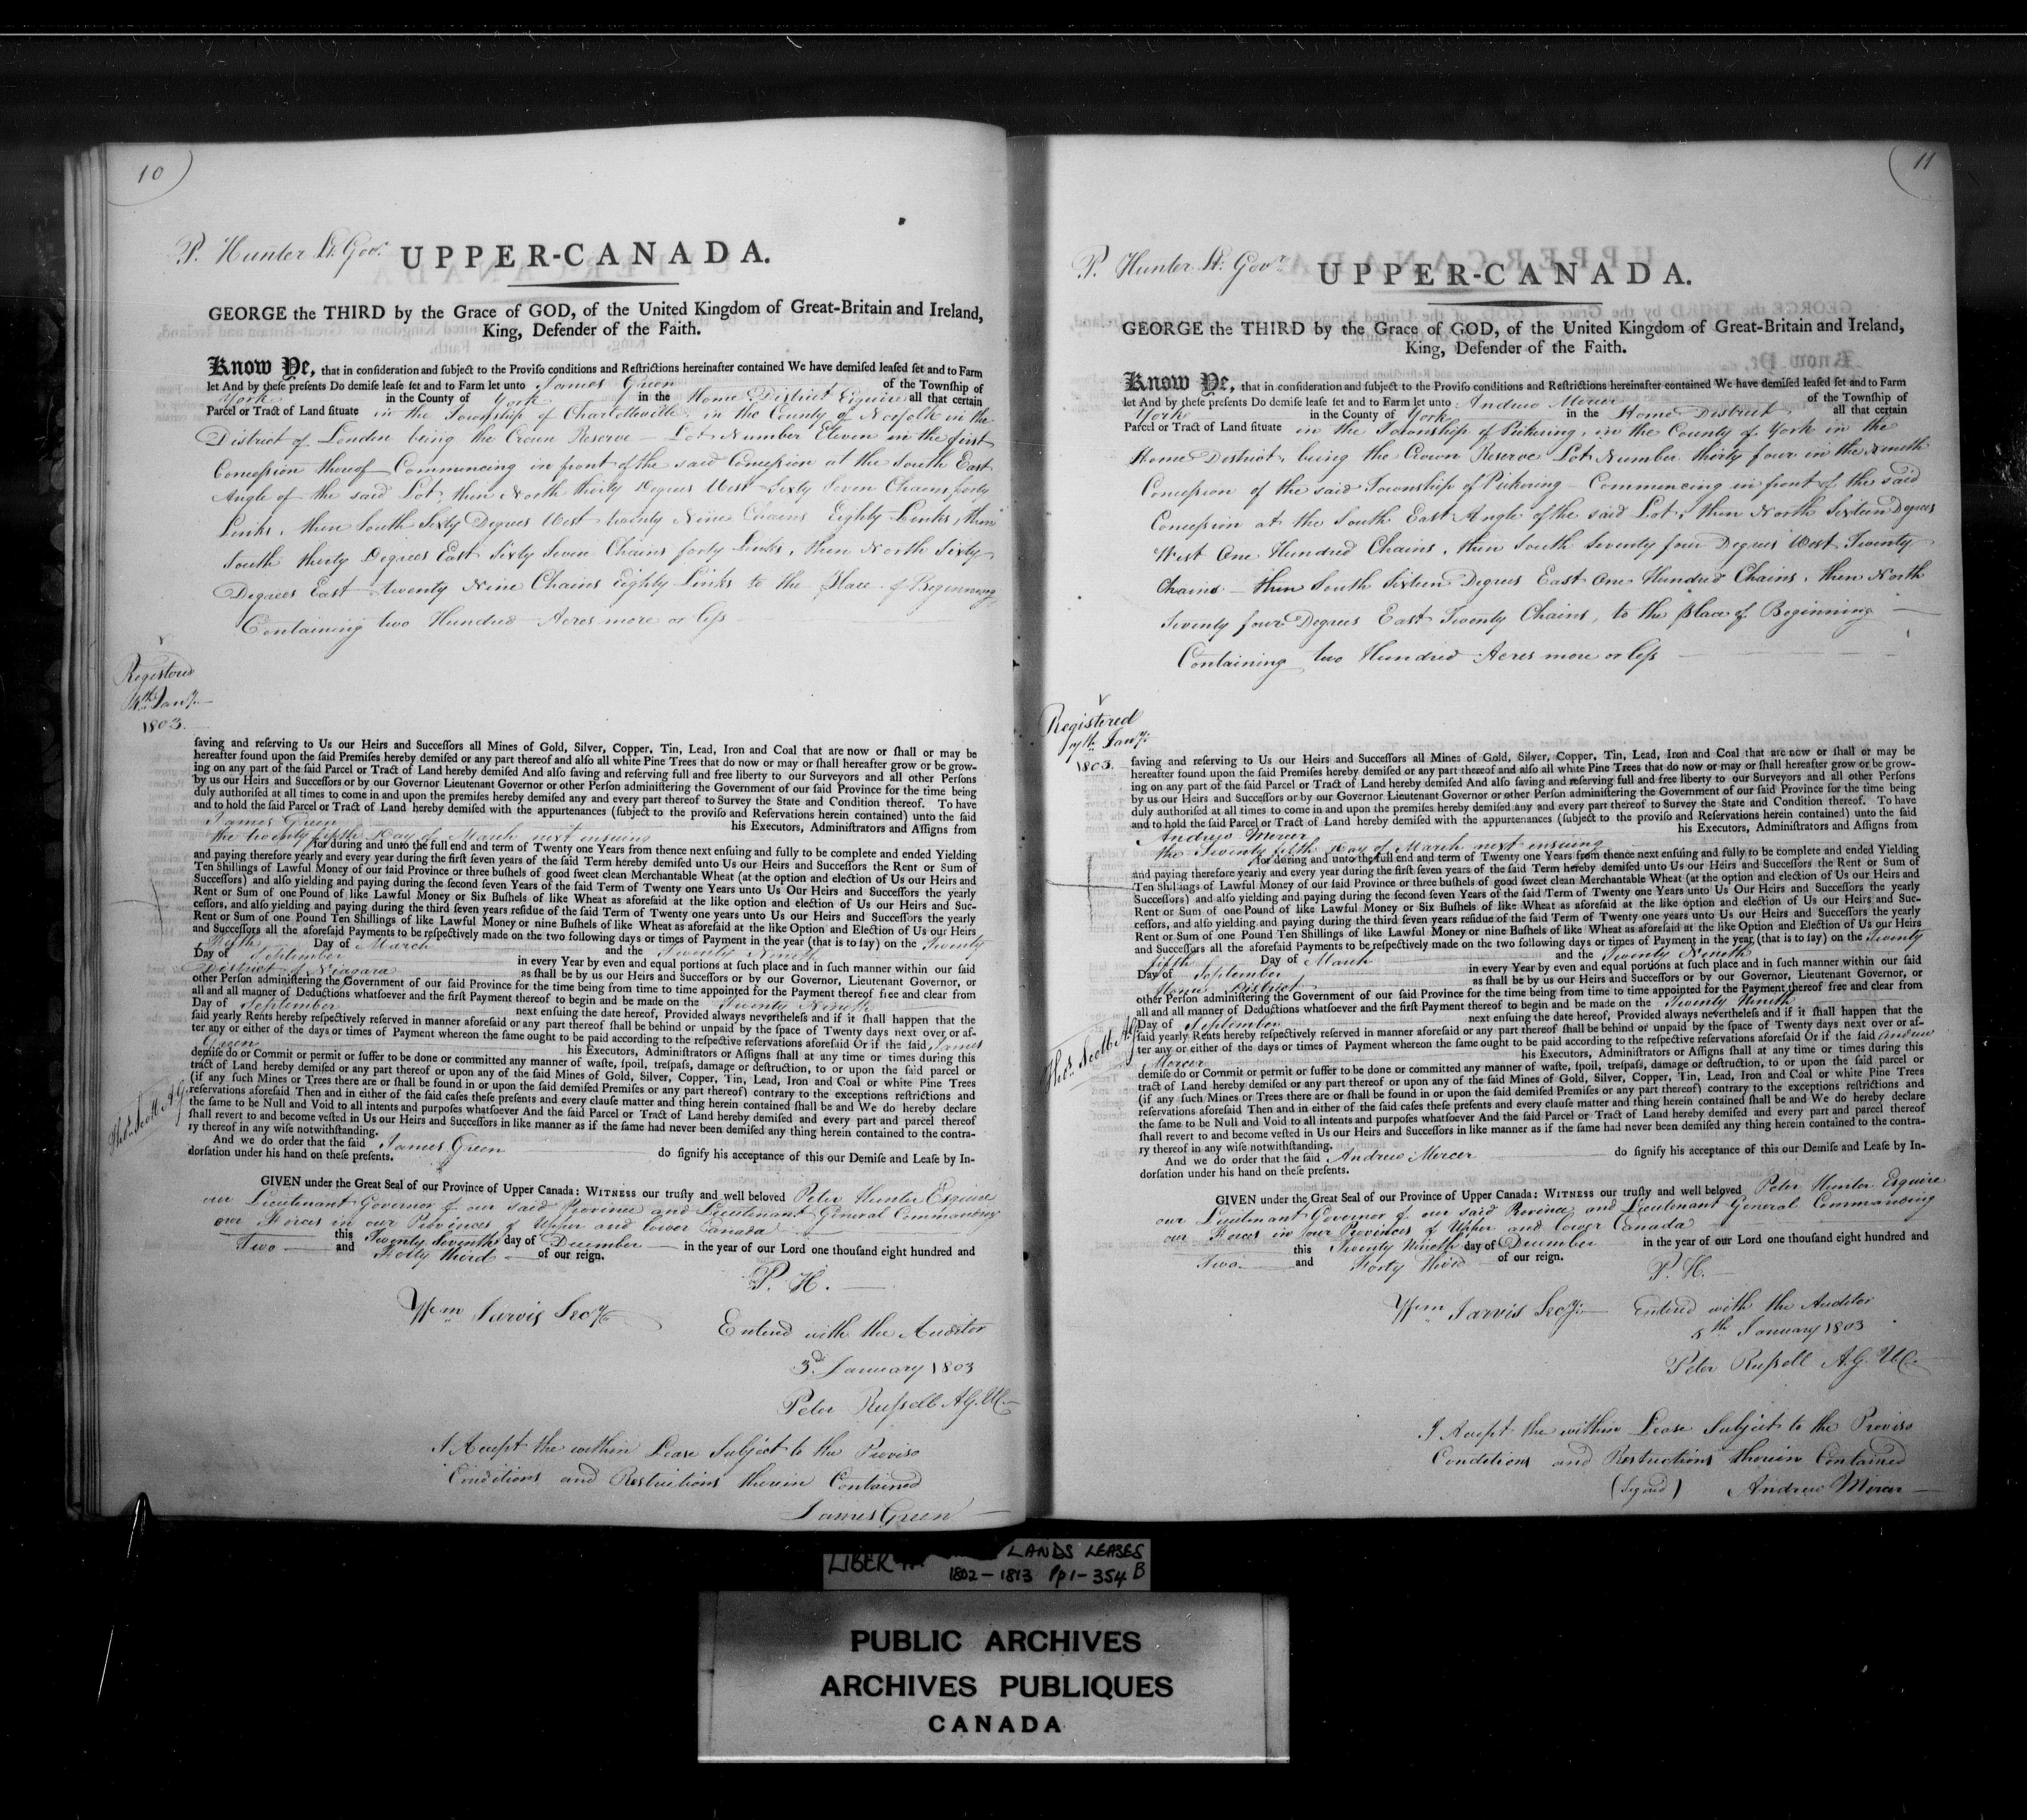 10
P. Hunter Lt. Govr.
UPPER-CANADA.
GEORGE the THIRD by the Grace of GOD, of the United Kingdom of Great-Britain and Ireland,
King, Defender of the Faith.
Know Ye, that in conſideration and subject to the Proviſo conditions and Reſtrictions hereinafter contained We have demiſed leaſed ſet and to Farm
let And by theſe preſents Do demiſe leaſe ſet and to Farm let unto James Green of the Township of
York in the County of York in the Home District Esquire all that certain
Parcel or Tract of Land ſituate in the Township of Charlotteville, in the County of Norfolk in the
District of London being the Crown Reserve — Lot Number Eleven in the first
Concession thereof — Commencing in front of the said Concession at the South East
Angle of the said Lot, then North thirty Degrees West Sixty Seven Chains forty
Links, then South Sixty Degrees West twenty Nine Chains Eighty Links, then
South thirty Degrees East Sixty Seven Chains forty Links, then North Sixty
Degrees East twenty Nine Chains Eighty Links to the Place of Beginning
Containing two Hundred Acres more or less
Registered
4th Jany.
1803.
ſaving and reſerving to Us our Heirs and Succeſſors all Mines of Gold, Silver, Copper, Tin, Lead, Iron and Coal that are now or ſhall or may be
hereafter found upon the ſaid Premiſes hereby demiſed or any part thereof and alſo all white Pine Trees that do now or may or ſhall hereafter grow or be grow-
ing on any part of the ſaid Parcel or Tract of Land hereby demiſed And alſo ſaving and reſerving full and free liberty to our Surveyors and all other Perſons
by us our Heirs and Succeſſors or by our Governor Lieutenant Governor or other Perſon adminiſtering the Government of our ſaid Province for the time being
duly authoriſed at all times to come in and upon the premiſes hereby demiſed any and every part thereof to Survey the State and Condition thereof. To have
and to hold the ſaid Parcel or Tract of Land hereby demiſed with the appurtenances (ſubject to the proviſo and Reſervations herein contained) unto the ſaid
James Green his Executors, Adminiſtrators and Aſſigns from
the twenty fifth Day of March next ensuing
for during and unto the full end and term of Twenty one Years from thence next enſuing and fully to be complete and ended Yielding
and paying therefore yearly and every year during the firſt ſeven years of the ſaid Term hereby demiſed unto Us our Heirs and Succeſſors the Rent or Sum of
Ten Shillings of Lawful Money of our ſaid Province or three buſhels of good ſweet clean Merchantable Wheat (at the option and election of Us our Heirs and
Succeſſors) and alſo yielding and paying during the ſecond ſeven Years of the ſaid Term of Twenty one Years unto Us Our Heirs and Succeſſors the yearly
Rent or Sum of one Pound of like Lawful Money or Six Buſhels of like Wheat as aforeſaid at the like option and election of Us our Heirs and Suc-
ceſſors, and alſo yielding and paying during the third ſeven years reſidue of the ſaid Term of Twenty one years unto Us our Heirs and Succeſſors the yearly
Rent or Sum of one Pound Ten Shillings of like Lawful Money or nine Buſhels of like Wheat as aforeſaid at the like Option and Election of Us our Heirs
and Succeſſors all the aforeſaid Payments to be reſpectively made on the two following days or times of Payment in the year (that is to ſay) on the Twenty
Fifth Day of March and the Twenty Nineth
Day of September in every Year by even and equal portions at ſuch place and in ſuch manner within our ſaid
District of Niagara as ſhall be by us our Heirs and Succeſſors or by our Governor, Lieutenant Governor, or
other Perſon adminiſtering the Government of our ſaid Province for the time being from time to time appointed for the Payment thereof free and clear from
all and all manner of Deductions whatſoever and the firſt Payment thereof to begin and be made on the Twenty Nineth
Day of September next enſuing the date hereof, Provided always nevertheleſs and if it ſhall happen that the
ſaid yearly Rents hereby reſpectively reſerved in manner aforeſaid or any part thereof ſhall be behind or unpaid by the ſpace of Twenty days next over or af-
ter any or either of the days or times of Payment whereon the ſame ought to be paid according to the reſpective reſervations aforeſaid Or if the ſaid James
Green his Executors, Adminiſtrators or Aſſigns ſhall at any time or times during this
demiſe do or Commit or permit or ſuffer to be done or committed any manner of waſte, ſpoil, treſpaſs, damage or deſtruction, to or upon the ſaid parcel or
tract of Land hereby demiſed or any part thereof or upon any of the ſaid Mines of Gold, Silver, Copper, Tin, Lead, Iron and Coal or white Pine Trees
(if any ſuch Mines or Trees there are or ſhall be found in or upon the ſaid demiſed Premiſes or any part thereof) contrary to the exceptions reſtrictions and
reſervations aforeſaid Then and in either of the ſaid caſes theſe preſents and every clauſe matter and thing herein contained ſhall be and We do hereby declare
the ſame to be Null and Void to all intents and purpoſes whatſoever And the ſaid Parcel or Tract of Land hereby demiſed and every part and parcel thereof
ſhall revert to and become veſted in Us our Heirs and Succeſſors in like manner as if the ſame had never been demiſed any thing herein contained to the contra-
ry thereof in any wiſe notwithſtanding.
Thos. Scott A.G.
And we do order that the ſaid James Green do ſignify his acceptance of this our Demiſe and Leaſe by In-
dorſation under his hand on theſe preſents.
GIVEN under the Great Seal of our Province of Upper Canada: WITNESS our truſty and well beloved Peter Hunter Esquire
our Lieutenant Governor of our said Province and Lieutenant General Commanding
our Forces in our Provinces of Upper and Lower Canada
this Twenty Seventh day of December in the year of our Lord one thouſand eight hundred and
Two and Forty third of our reign.
P. H.
Wm Jarvis Secy.
Entered with the Auditor
3d. January 1803
Peter Russell A.G. U.C.
I Accept the within Lease Subject to the Proviso
Conditions and Restrictions therein Contained
James Green
11
P. Hunter Lt. Govr.
UPPER-CANADA.
GEORGE the THIRD by the Grace of GOD, of the United Kingdom of Great-Britain and Ireland,
King, Defender of the Faith.
Know Ye, that in conſideration and ſubject to the Proviſo conditions and Reſtrictions hereinafter contained We have demiſed leaſed ſet and to Farm
let And by theſe preſents Do demiſe leaſe ſet and to Farm let unto Andrew Mercer of the Township of
York in the County of York in the Home District, all that certain
Parcel or Tract of Land ſituate in the Township of Pickering, in the County of York in the
Home District, being the Crown Reserve Lot Number thirty four in the Nineth
Concession of the said Township of Pickering — Commencing in front of the said
Concession at the South East Angle of the said Lot, then North Sixteen Degrees
West One Hundred Chains, then South Seventy four Degrees West Twenty
Chains — then South Sixteen Degrees East One Hundred Chains, then North
Seventy four Degrees East Twenty Chains, to the Place of Beginning
Containing two Hundred Acres more or less
Registered
7th Jany.
1803.
ſaving and reſerving to Us our Heirs and Succeſſors all Mines of Gold, Silver, Copper, Tin, Lead, Iron and Coal that are now or ſhall or may be
hereafter found upon the ſaid Premiſes hereby demiſed or any part thereof and alſo all white Pine Trees that do now or may or ſhall hereafter grow or be grow-
ing on any part of the ſaid Parcel or Tract of Land hereby demiſed And alſo ſaving and reſerving full and free liberty to our Surveyors and all other Perſons
by us our Heirs and Succeſſors or by our Governor Lieutenant Governor or other Perſon adminiſtering the Government of our ſaid Province for the time being
duly authoriſed at all times to come in and upon the premiſes hereby demiſed any and every part thereof to Survey the State and Condition thereof. To have
and to hold the ſaid Parcel or Tract of Land hereby demiſed with the appurtenances (ſubject to the proviſo and Reſervations herein contained) unto the ſaid
Andrew Mercer his Executors, Adminiſtrators and Aſſigns from
the Twenty fifth Day of March next ensuing
for during and unto the full end and term of Twenty one Years from thence next enſuing and fully to be complete and ended Yielding
and paying therefore yearly and every year during the firſt ſeven years of the ſaid Term hereby demiſed unto Us our Heirs and Succeſſors the Rent or Sum of
Ten Shillings of Lawful Money of our ſaid Province or three buſhels of good ſweet clean Merchantable Wheat (at the option and election of Us our Heirs and
Succeſſors) and alſo yielding and paying during the ſecond ſeven Years of the ſaid Term of Twenty one Years unto Us Our Heirs and Succeſſors the yearly
Rent or Sum of one Pound of like Lawful Money or Six Buſhels of like Wheat as aforeſaid at the like option and election of Us our Heirs and Suc-
ceſſors, and alſo yielding and paying during the third ſeven years reſidue of the ſaid Term of Twenty one years unto Us our Heirs and Succeſſors the yearly
Rent or Sum of one Pound Ten Shillings of like Lawful Money or nine Buſhels of like Wheat as aforeſaid at the like Option and Election of Us our Heirs
and Succeſſors all the aforeſaid Payments to be reſpectively made on the two following days or times of Payment in the year (that is to ſay) on the Twenty
fifth Day of March and the Twenty Nineth
Day of September in every Year by even and equal portions at ſuch place and in ſuch manner within our ſaid
Home District as ſhall be by us our Heirs and Succeſſors or by our Governor, Lieutenant Governor, or
other Perſon adminiſtering the Government of our ſaid Province for the time being from time to time appointed for the Payment thereof free and clear from
all and all manner of Deductions whatſoever and the firſt Payment thereof to begin and be made on the Twenty Nineth
Day of September next enſuing the date hereof, Provided always nevertheleſs and if it ſhall happen that the
ſaid yearly Rents hereby reſpectively reſerved in manner aforeſaid or any part thereof ſhall be behind or unpaid by the ſpace of Twenty days next over or af-
ter any or either of the days or times of Payment whereon the ſame ought to be paid according to the reſpective reſervations aforeſaid Or if the ſaid Andrew
Mercer his Executors, Adminiſtrators or Aſſigns ſhall at any time or times during this
demiſe do or Commit or permit or ſuffer to be done or committed any manner of waſte, ſpoil, treſpaſs, damage or deſtruction, to or upon the ſaid parcel or
tract of Land hereby demiſed or any part thereof or upon any of the ſaid Mines of Gold, Silver, Copper, Tin, Lead, Iron and Coal or white Pine Trees
(if any ſuch Mines or Trees there are or ſhall be found in or upon the ſaid demiſed Premiſes or any part thereof) contrary to the exceptions reſtrictions and
reſervations aforeſaid Then and in either of the ſaid caſes theſe preſents and every clauſe matter and thing herein contained ſhall be and We do hereby declare
the ſame to be Null and Void to all intents and purpoſes whatſoever And the ſaid Parcel or Tract of Land hereby demiſed and every part and parcel thereof
ſhall revert to and become veſted in Us our Heirs and Succeſſors in like manner as if the ſame had never been demiſed any thing herein contained to the contra-
ry thereof in any wiſe notwithſtanding.
Thos. Scott A.G.
And we do order that the ſaid Andrew Mercer do ſignify his acceptance of this our Demiſe and Leaſe by In-
dorſation under his hand on theſe preſents.
GIVEN under the Great Seal of our Province of Upper Canada: WITNESS our truſty and well beloved Peter Hunter Esquire
our Lieutenant Governor of our said Province and Lieutenant General Commanding
our Forces in our Provinces of Upper and Lower Canada
this Twenty Nineth day of December in the year of our Lord one thouſand eight hundred and
Two and Forty third of our reign.
P. H.
Wm Jarvis Secy.
Entered with the Auditor
5th January 1803
Peter Russell A.G. U.C.
I Accept the within Lease Subject to the Proviso
Conditions and Restrictions therein Contained
(Signed) Andrew Mercer
LIBER LANDS LEASES
1802-1813 Pp 1-354 B
PUBLIC ARCHIVES
ARCHIVES PUBLIQUES
CANADA